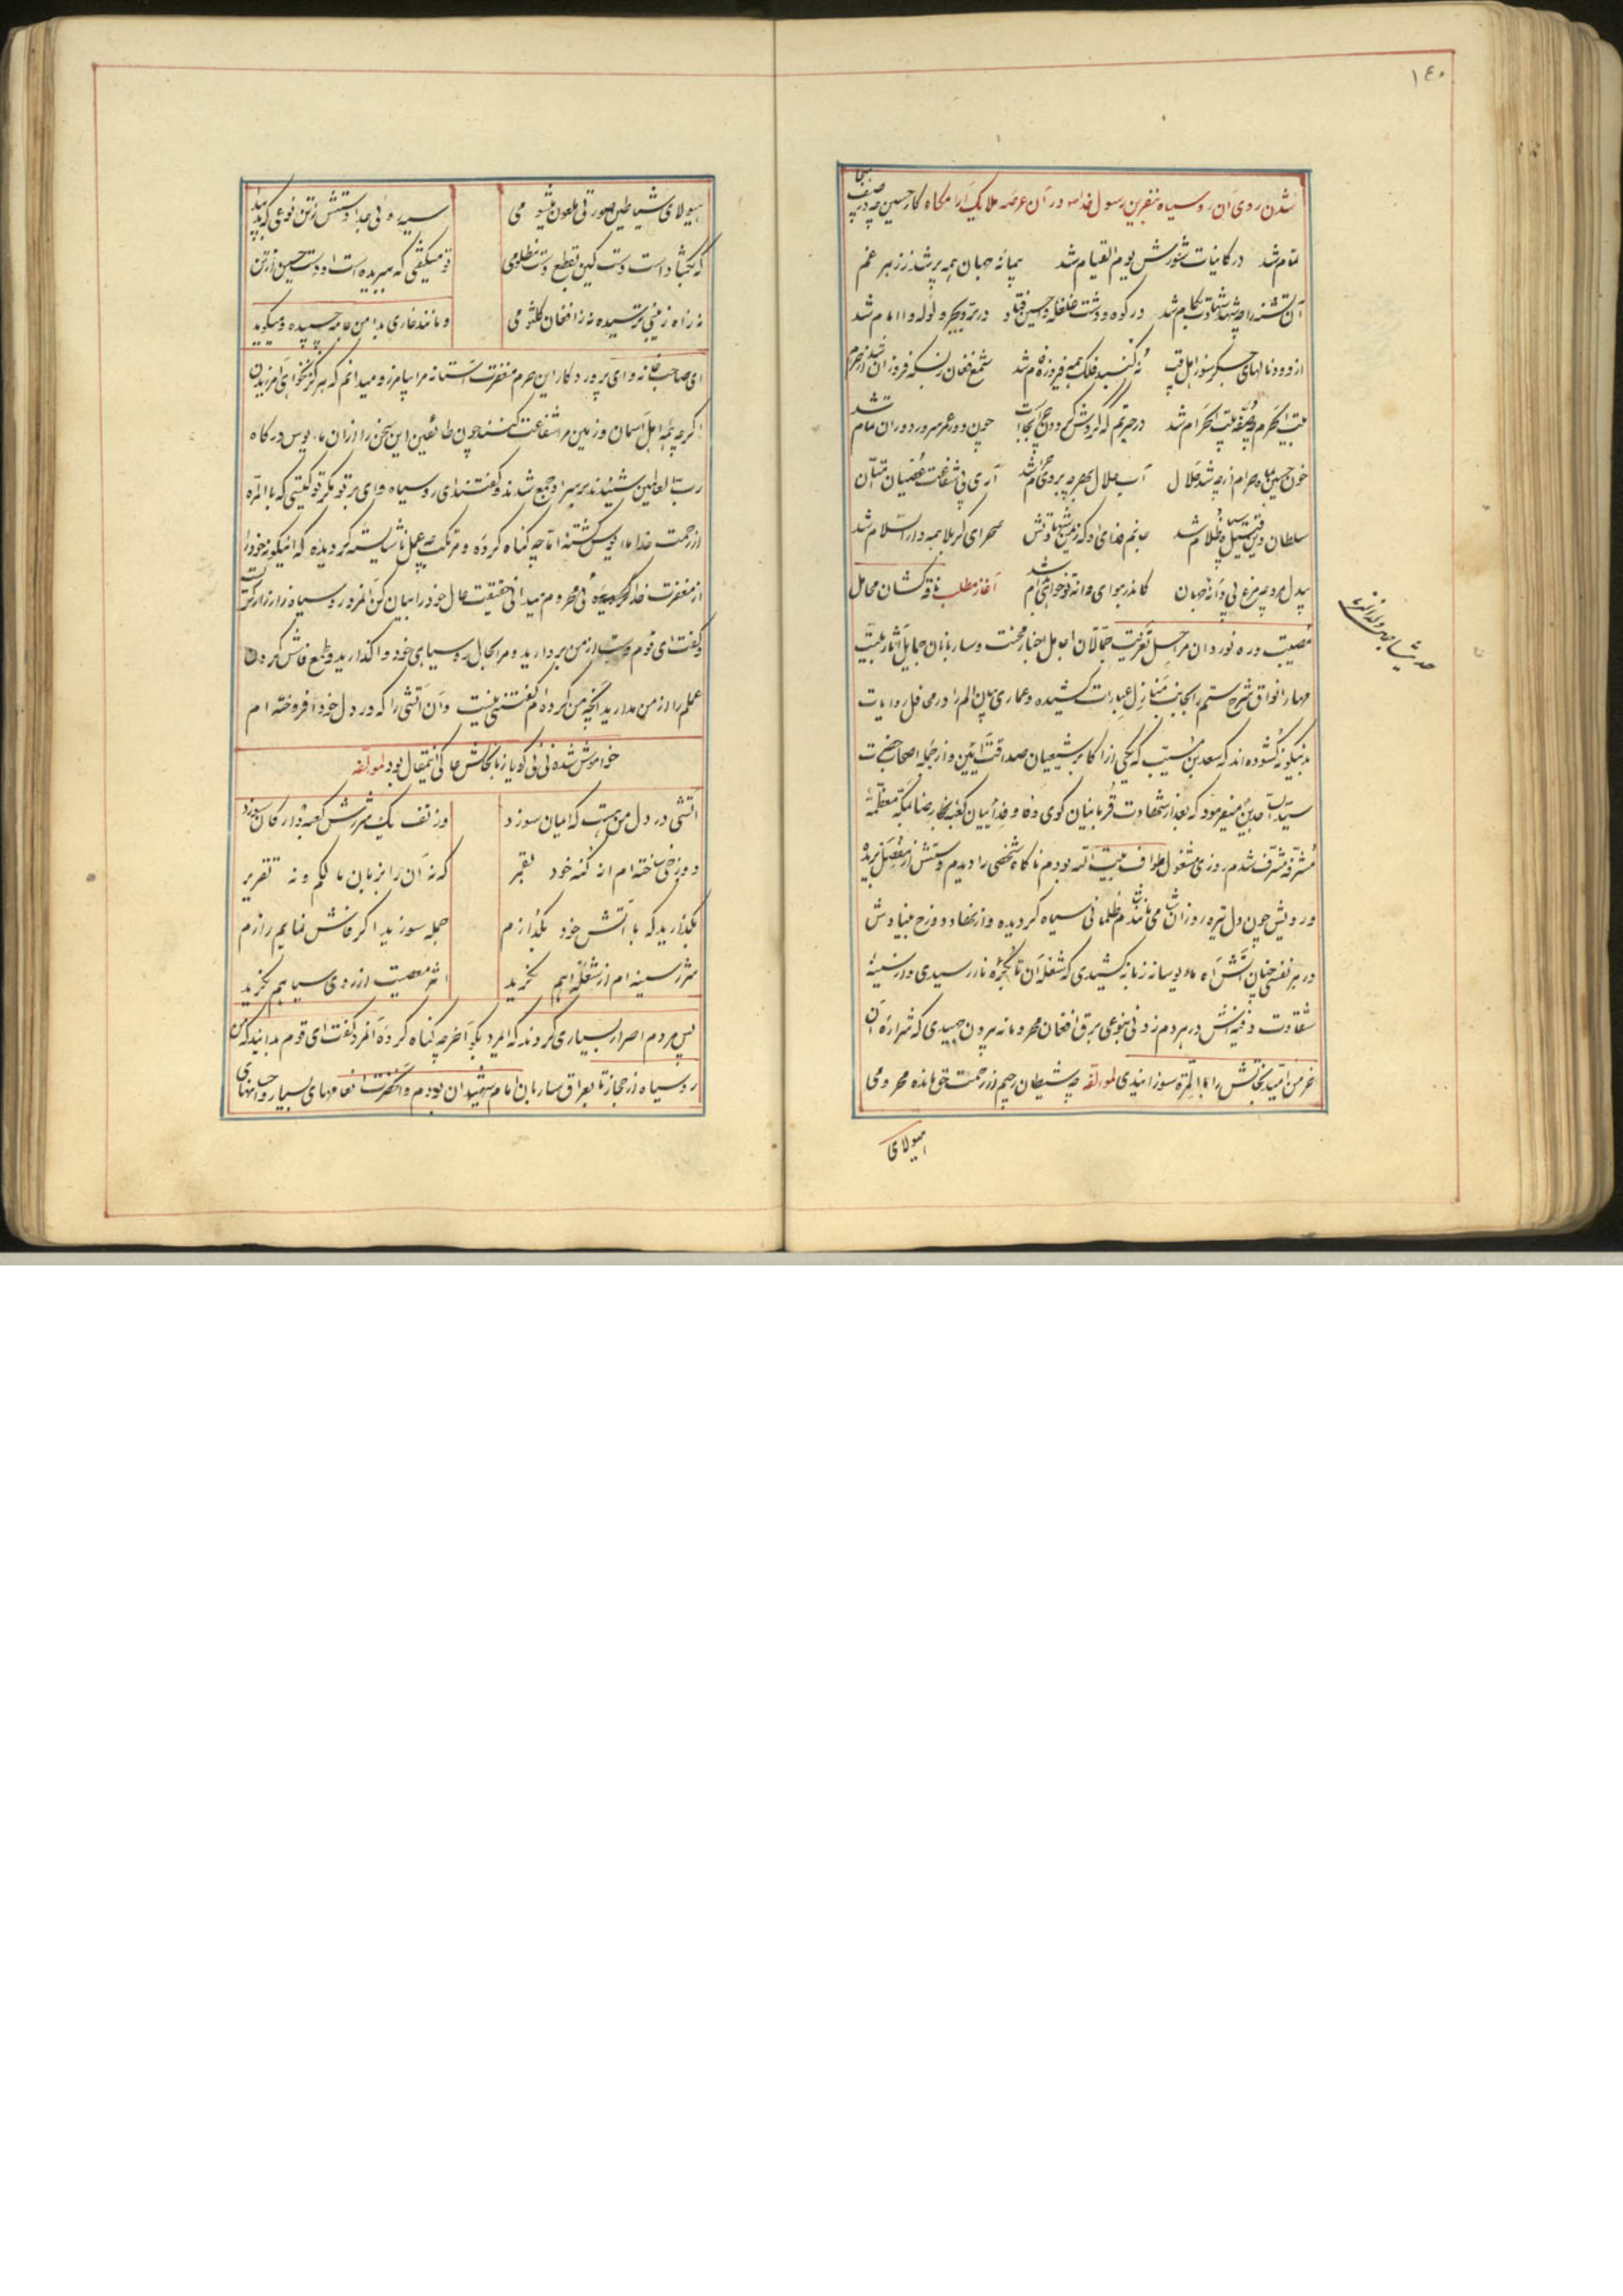 ١٤٠
شدن روی آن روسیاه بنفرین رسول خدا ص در آن عرصه ملایک آرامگاه کار حسین چه در صف هیجا
تمام شد در کاینات شورش یوم القیام شد پیمانه جهان همه پر شد ز زهر غم
آن تشنه را چه شهد شهادت بکام شد در کوه و دشت غلغله وا حسین فتاد در بر و بحر ولوله وا امام شد
از دود نالهای جگرسوز اهل بیت نه گنبد فلک همه فیروزه فام شد شمع فغان زبسکه فروزان شد از حرم
بیت الحرم وقفه بیت الحرام شد در حیرتم که گردش گردون چرا بجاست چون دور عمر سرور دوران تمام شد
خون حسین ماه حرام از چه شد حلال آب حلال بهر چه بر وی حرام شد آری پی شفاعت عصیان امتان
سلطان دین قتیل سپاه ظلام شد جانم فدای او که ز یمن شهادتش صحرای کربلا همه دار السلام شد
بیدل مرو چه مرغ پی دانه جهان کاندر هوای دانه تو خواهی بدام شد آغاز مطلب ناقه کشان محامل
مصیبت و ره نوردان مراحل تعزیت جمالان احامل اخبار محنت و ساربانان جمایل آثار بلیت
مهار نواق شرح ستم را بجانب منازل عبارات کشیده و عماری بیان الم را در محافل روایات
بدینگونه گشوده اند که سعد بن مسیب که یکی از اکابر شیعیان صداقت آئین و از جمله اصحاب حضرت
سید الساجدین میفرمود که بعد از شهادت قربانیان کوی وفا و فدائیان کعبه رضا بمکه معظمه
مشرفه مشرف شدم روزی مشغول طواف بیت الله بودم ناگاه شخصی را دیدم دستش از مفصل بریده
و رویش چون دل تیره روزان شام ظلمانی سیاه گردیده و از نهاد دوزخ بنیادش
در هر نفسی چنان آتش آه مایوسانه زبانه کشیدی که شعله آن تا بحجره نار رسیدی و از سینه
شقاوت دفینه اش در هر دم زدنی بنوعی برق افغان محرومانه بیرون جهیدی که شراره آن
خرمن امید نجاتش را بالمره سوزانیدی لمولفه چه شیطان رجیم از رحمت حق مانده محرومی
هیولای
هیولای شیاطین صورتی ملعون میشومی سیه روئی جدا دستش ز تن نوعی که پنداری
که بگشاد است دست کین بقطع دست مظلومی تو میگفتی که ببریده است او دست حسین از تن
نه ز آه زینبی ترسیده نه ز افغان کلثومی و مانند خاری بدامن جامه چسپیده و میگوید
ای صاحب خانه و ای پروردگار این حرم مغفرت آستانه مرا بیامرز و میدانم که هرگز نخواهی آمرزیدن
اگر چه همه اهل آسمان و زمین مرا شفاعت کنند چون طائفین این سخن را از آن مایوس درگاه
رب العالمین شنیدند بر سر او جمع شدند و گفتند ای روسیاه وای بر تو مگر تو کیستی که بالمره
از رحمت خدا مایوس گشته اما چه گناه کرده و مرتکب چه عمل ناشایسته گردیده که اینگونه خود را
از مغفرت خداوند محروم میدانی حقیقت حال خود را بیان کن آنمرد روسیاه زار زار گریست
و گفت ای قوم دست از من بردارید و مرا بحال روسیاهی خود واگذارید و طمع فاش کردن
عملم را از من مدارید آنچه من کرده ام گفتنی نیست و آن آتشی را که در دل خود افروخته ام
خواموش شدنی نی گویا زبانحالش حاکی اینمقال بود لمولفه
آتشی در دل من هست که امیان سوزد وز تف یک شررش کعبه و ارکان سوزد
دوزخی ساخته ام از گنه خود بقبر که نه آن را بزبان مالکم و نه تقریر
بگذارید که با آتش خود بگذارم جمله سوزید اگر فاش نمایم رازم
شرر سینه ام از شعله آهم بگزید اثر معصیت از روی سیاهم بگزید
پس مردم اصرار بسیاری کردند که ایمرد بگو آخر چه گناه کرده آنمرد گفت ای قوم بدانید که من
روسیاه از حجاز تا بعراق ساربان امام شهیدان بودم و آنحضرت انعامهای بسیار و احسانهای